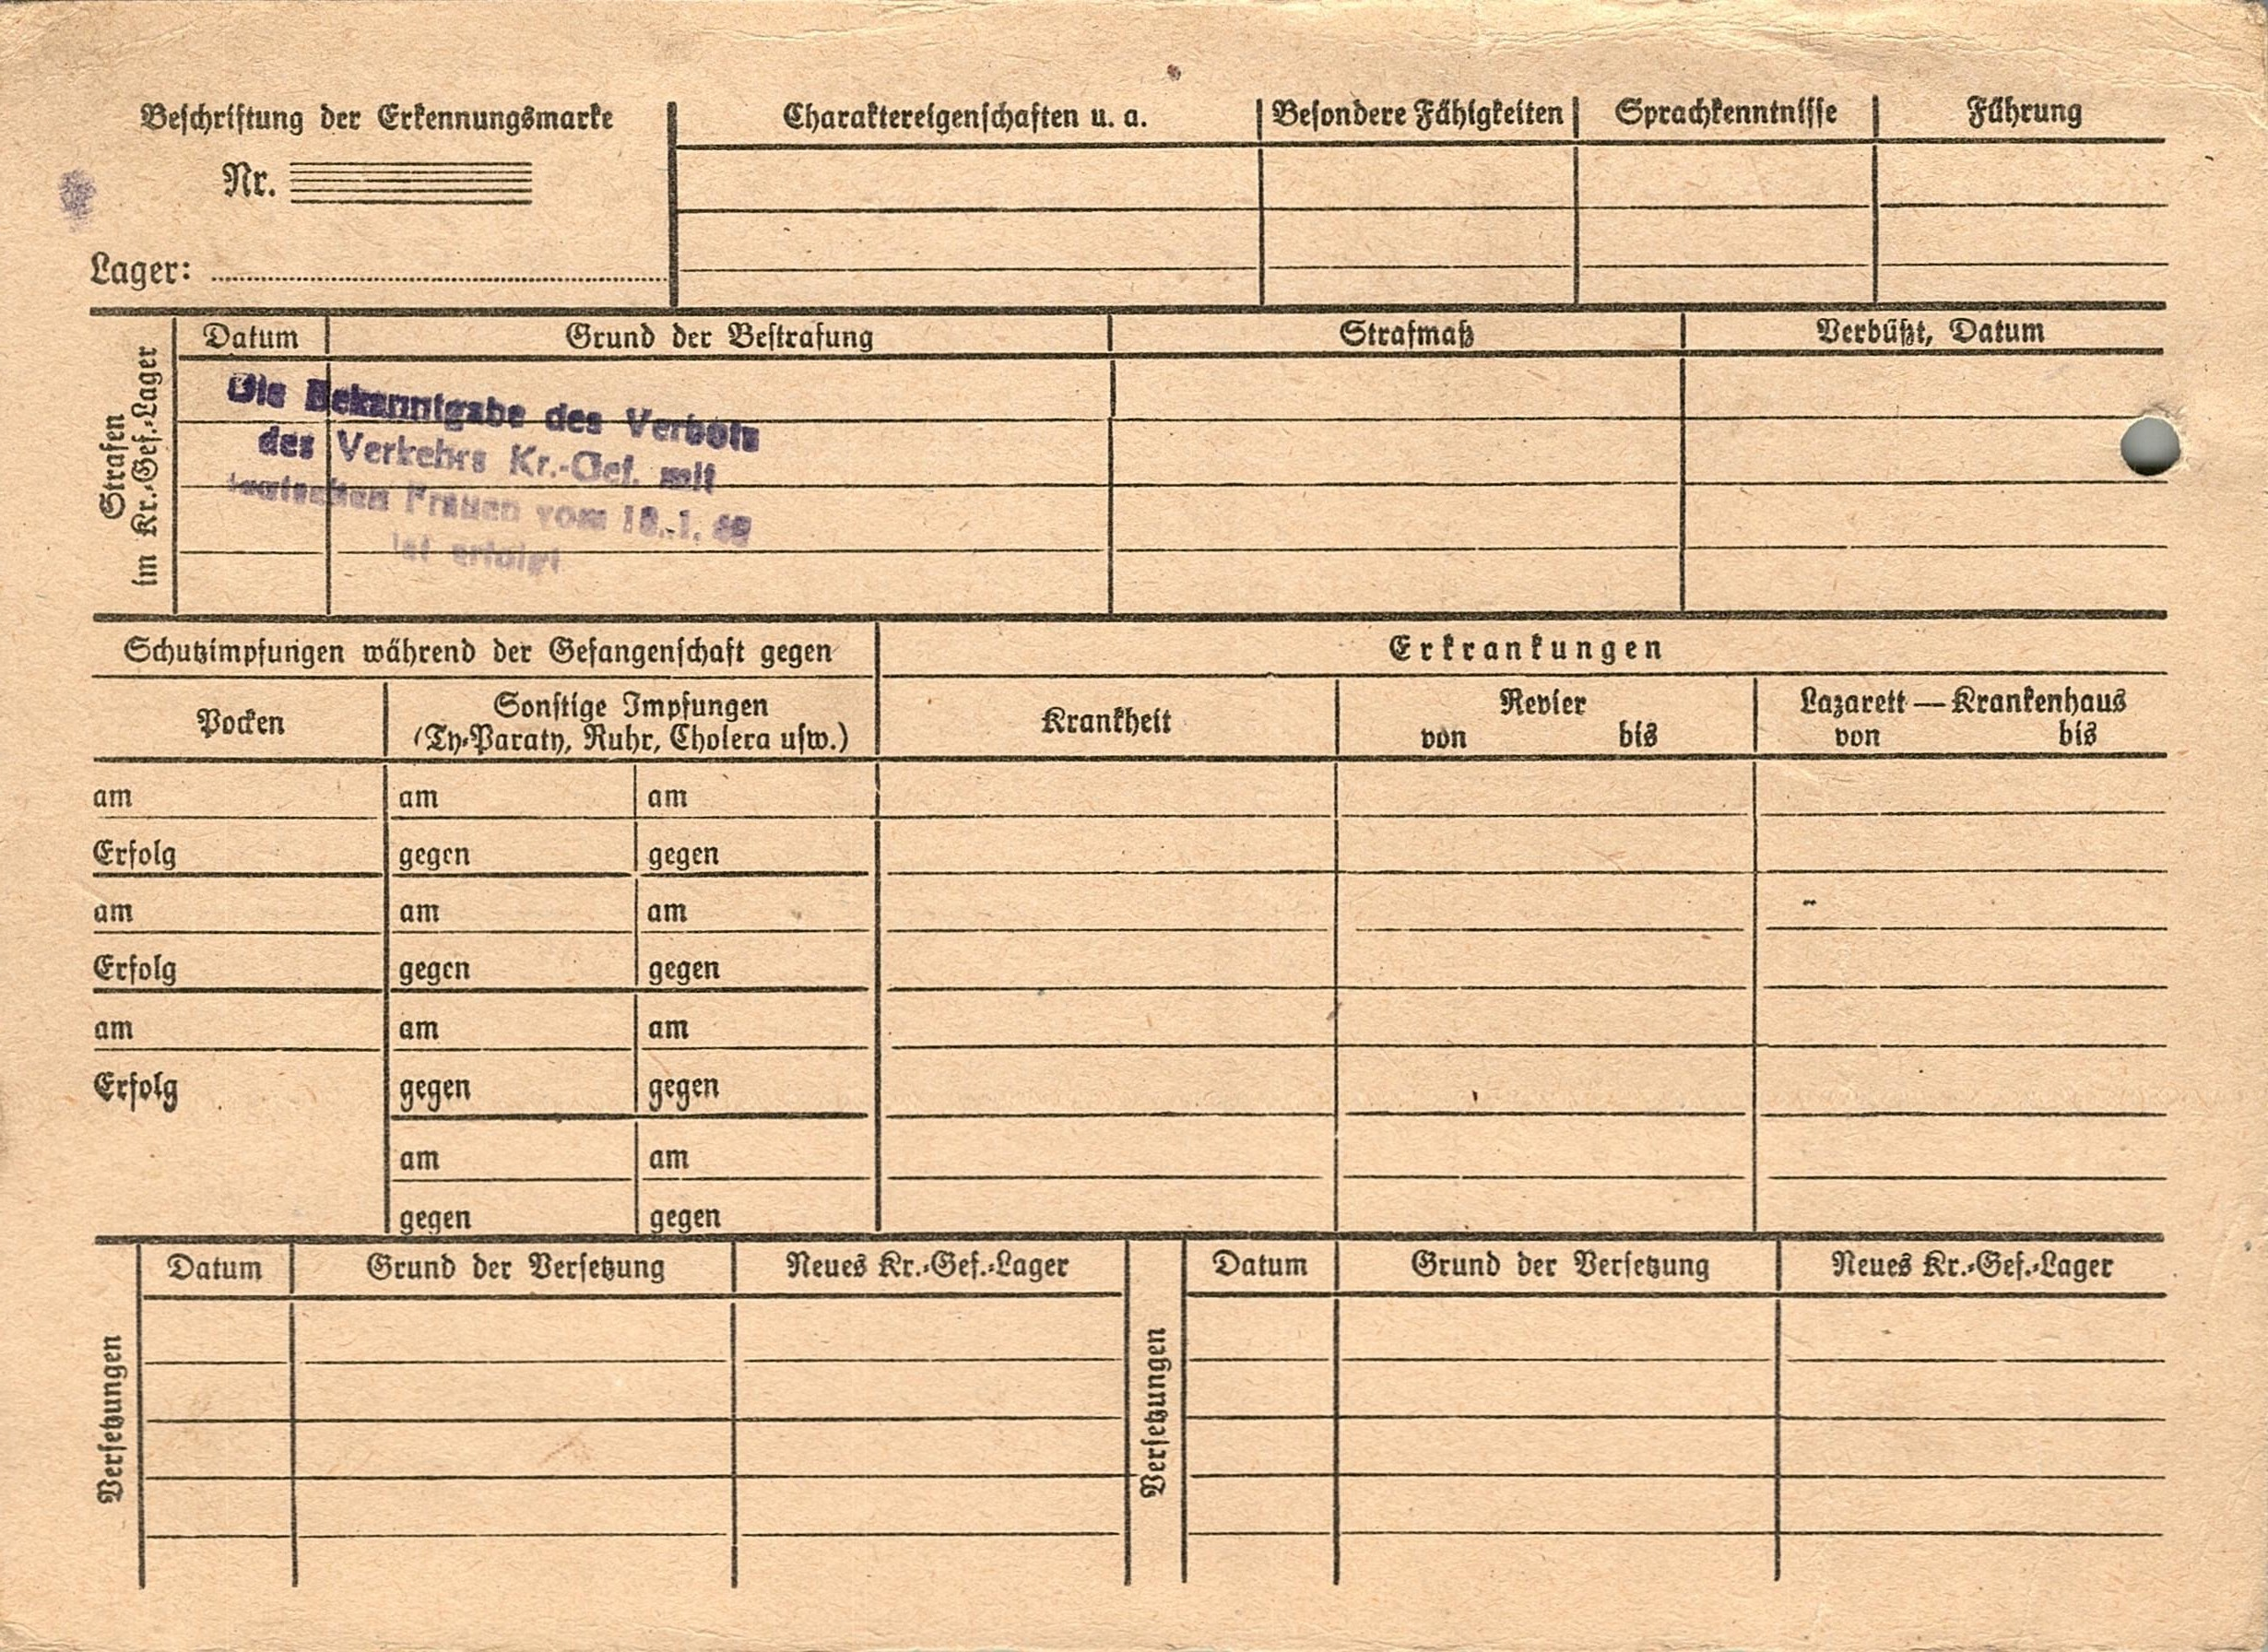 Beschriftung der Erkennungsmarke
Charaktereigenschaften u. a.
Besondere Fähigkeiten
Sprachkenntnisse
Führung
Nr.
Lager:
Strafen
im Kr.-Gef.-Lager
Datum
Grund der Bestrafung
Strafmaß
Verbüßt, Datum
Die Bekanntgabe des Verbots
des Verkehrs Kr.-Gef. mit
Frauen vom
ist erfolgt
Schutzimpfungen während der Gefangenschaft gegen
Erkrankungen
Pocken
Sonstige Impfungen
(Ty-Paraty, Ruhr, Cholera usw.)
Krankheit
Revier
von bis
Lazarett — Krankenhaus
von bis
am am am
Erfolg gegen gegen
am am am
Erfolg gegen gegen
am am am
Erfolg gegen gegen
am am
gegen gegen
Versetzungen
Datum
Grund der Versetzung
Neues Kr.-Gef.-Lager
Versetzungen
Datum
Grund der Versetzung
Neues Kr.-Gef.-Lager